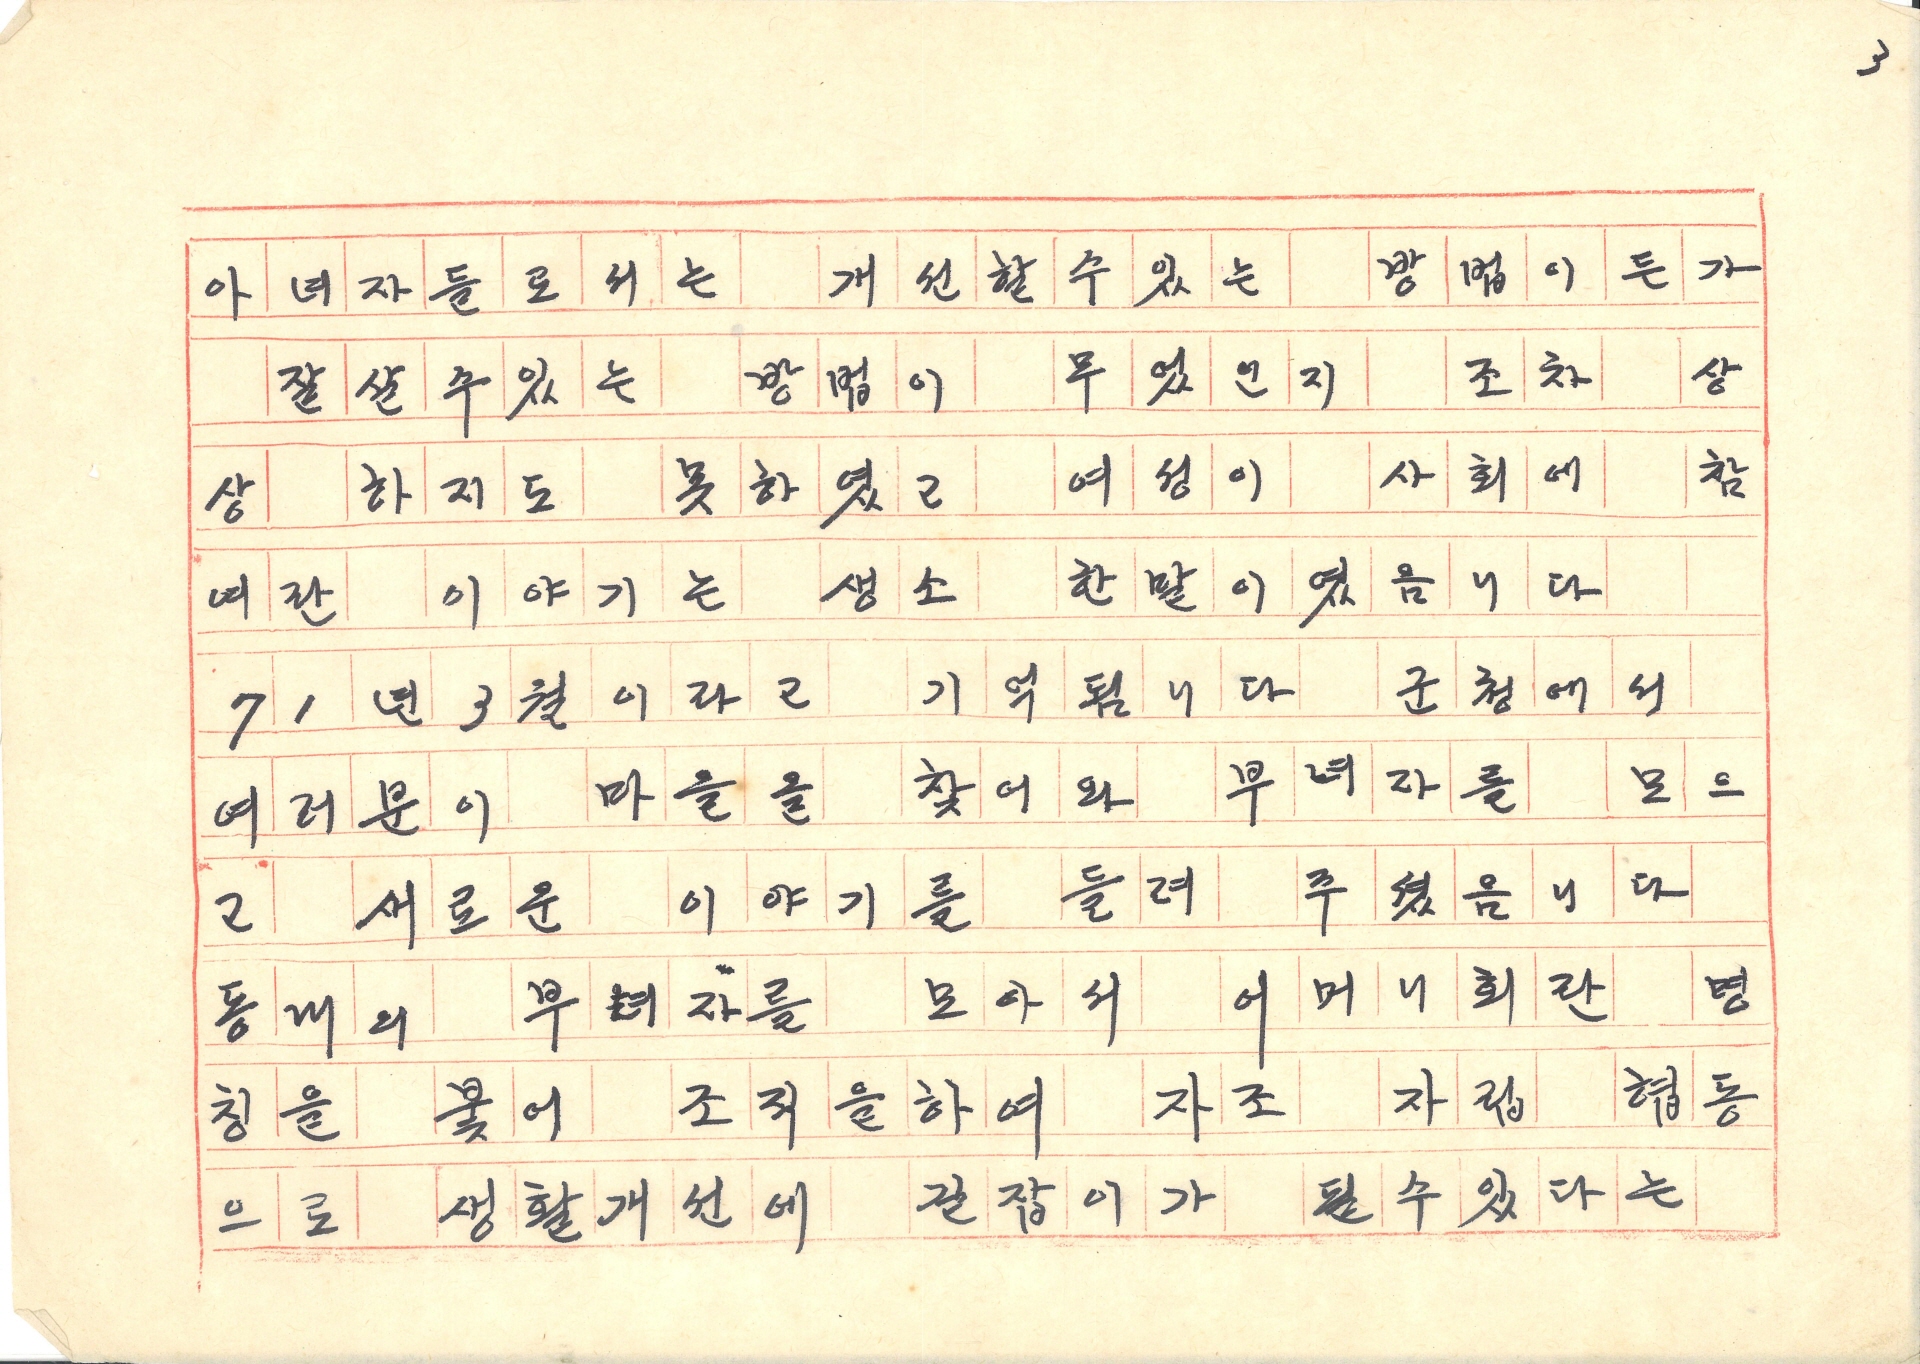 3
아녀자들로서는 개선할수있는 방법이든가
잘살수있는 방법이 무었인지 조차 상
상 하지도 못하였고 여성이 사회에 참
여란 이야기는 생소 한말이였음니다
71년3월이라고 기억됨니다 군청에서
여러분이 마을을 찾어와 부녀자를 모으
고 새로운 이야기를 들려 주셨음니다
동내의 부녀자를 모아서 어머니회란 명
칭을 붗어 조직을하여 자조 자립 협동
으로 생활개선에 길잡이가 될수있다는